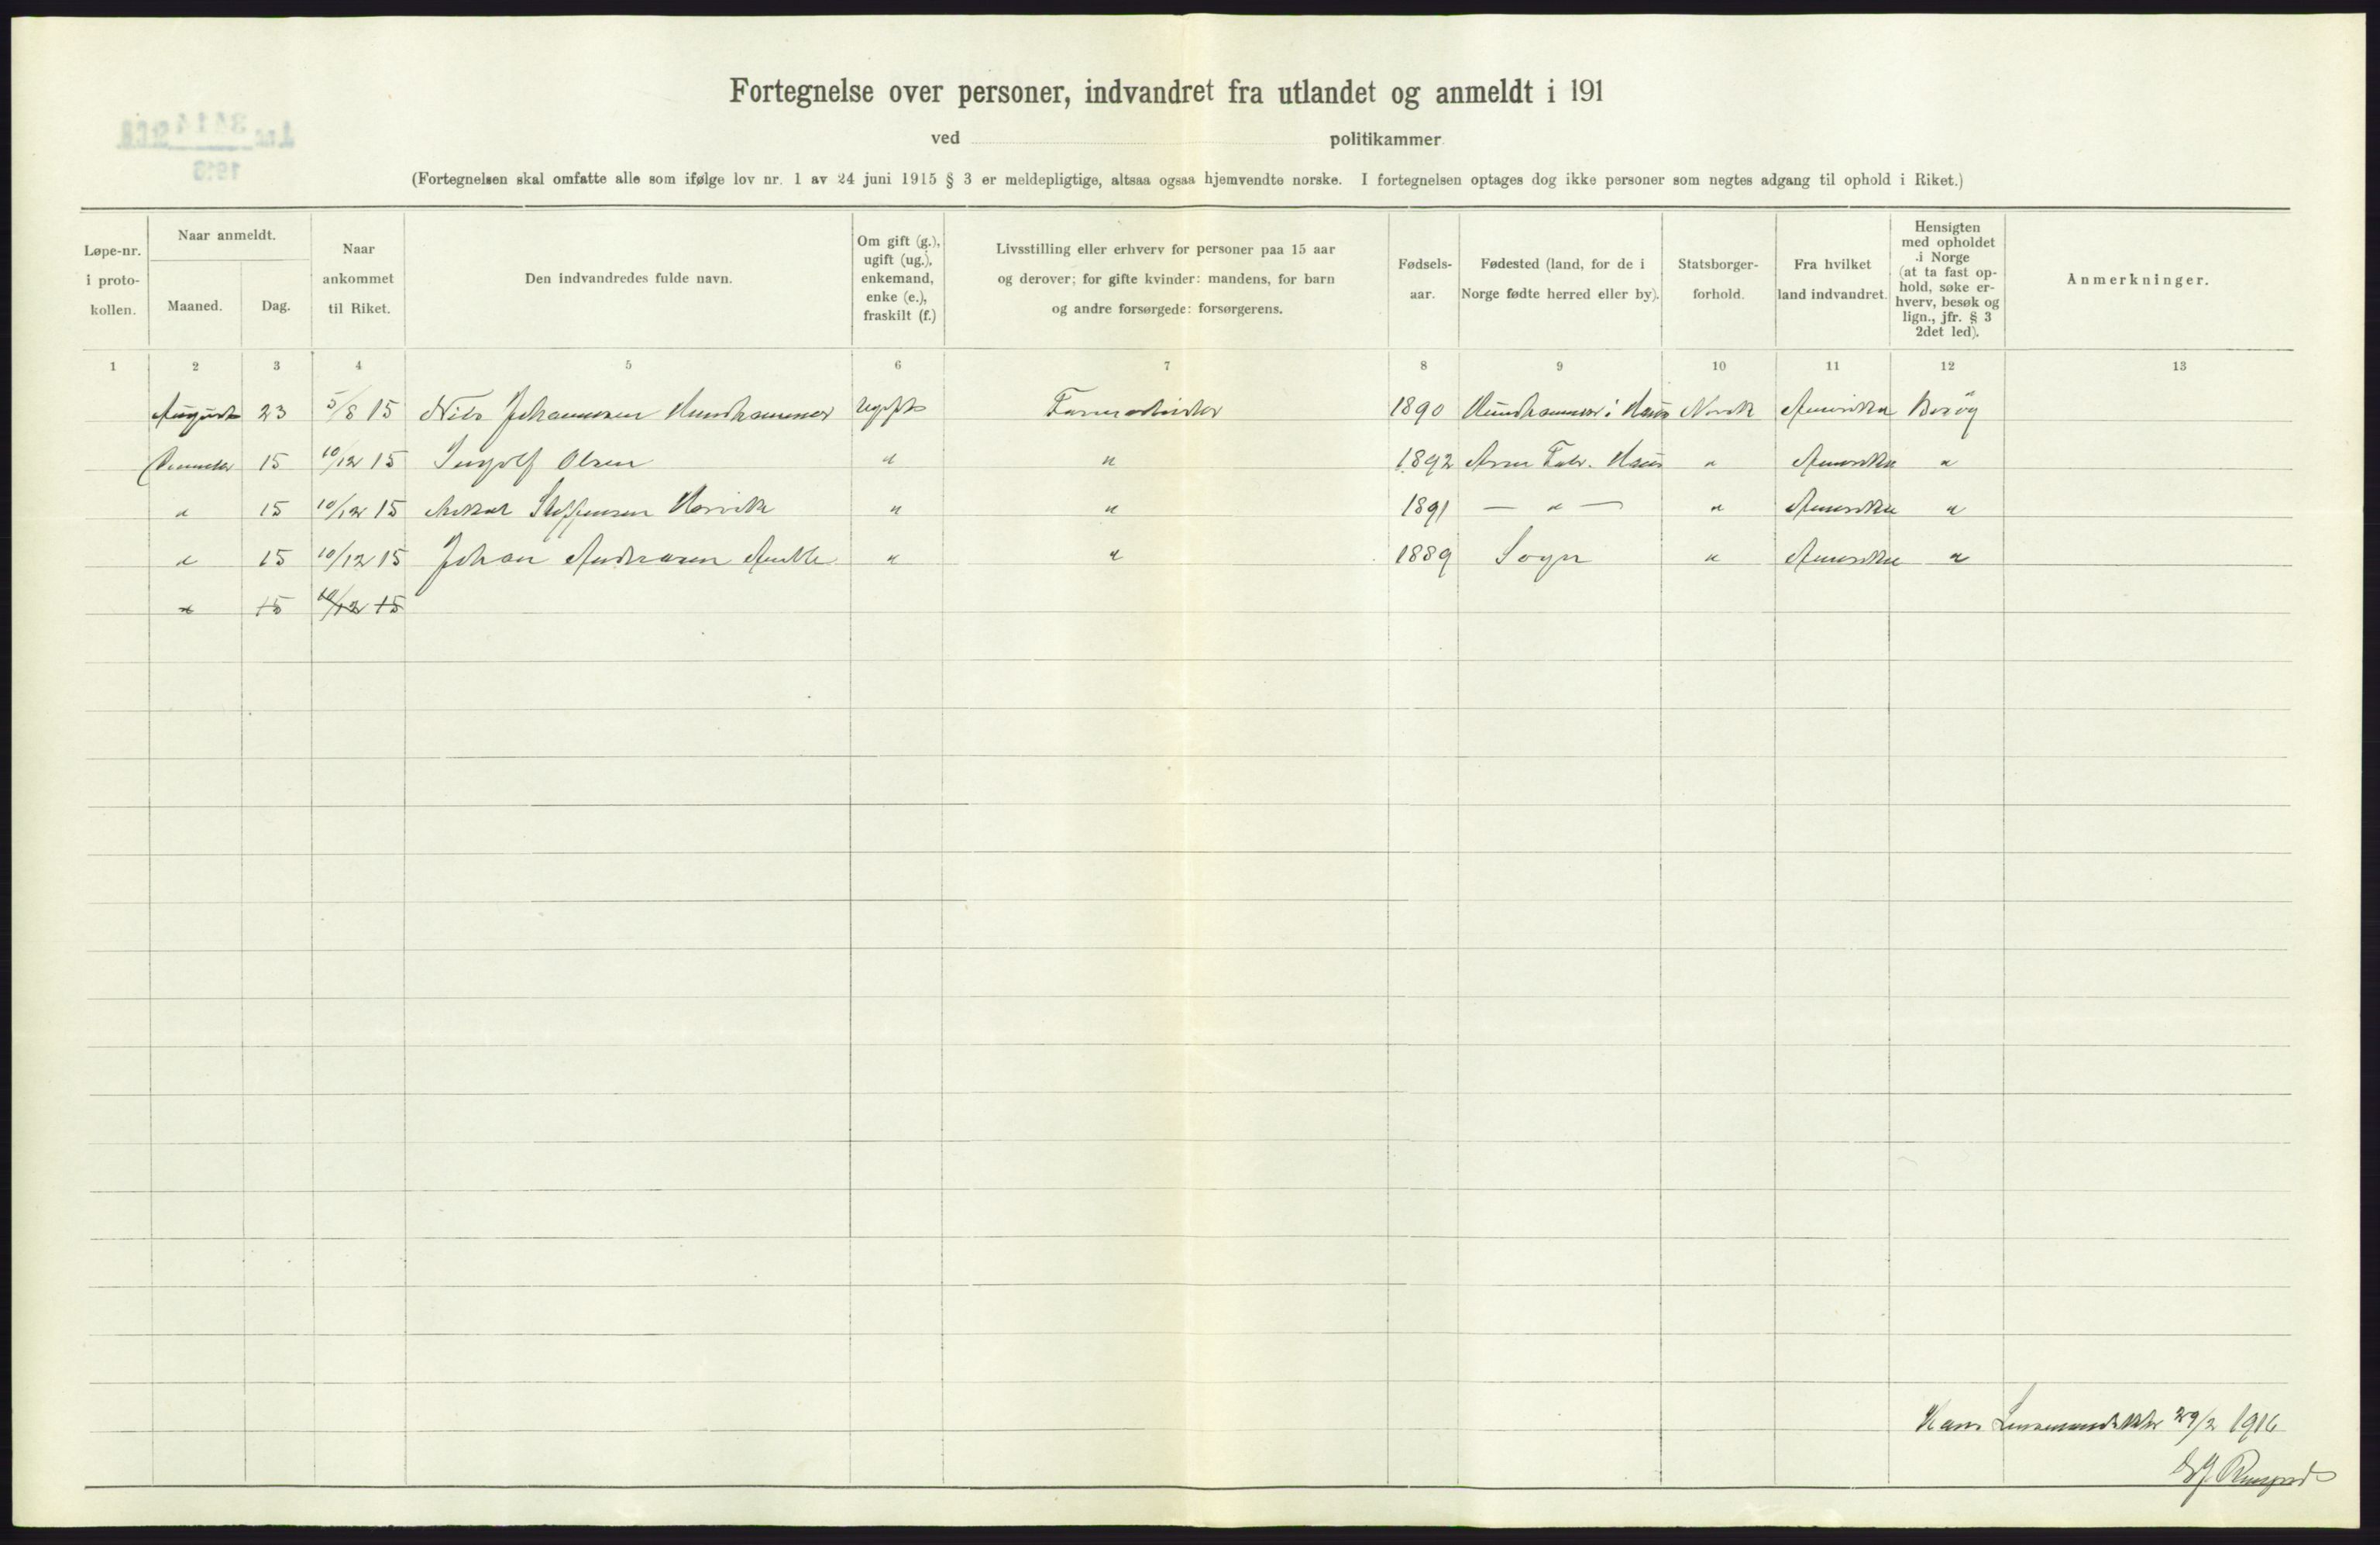 Fortegnelse over personer, indvandret fra utlandet og anmeldt i 191
ved politikammer
(Fortegnelsen skal omfatte alle som ifølge lov nr. 1 av 24 juni 1915 § 3 er meldepligtige, altsaa ogsaa hjemvendte norske. I fortegnelsen optages dog ikke personer som negtes adgang til ophold i Riket.)
Løpe-nr.
i proto-
kollen.
Naar anmeldt.
Maaned.
Dag.
Naar
ankommet
til Riket.
Den indvandredes fulde navn.
Om gift (g.),
ugift (ug.),
enkemand,
enke (e.),
fraskilt (f.)
Livsstilling eller erhverv for personer paa 15 aar
og derover; for gifte kvinder: mandens, for barn
og andre forsørgede: forsørgerens.
Fødsels-
aar.
Fødested (land, for de i
Norge fødte herred eller by).
Statsborger-
forhold.
Fra hvilket
land indvandret.
Hensigten
med opholdet
i Norge
(at ta fast op-
hold, søke er-
hverv, besøk og
lign., jfr. § 3
2det led).
Anmerkninger.
1 2 3 4 5 6 7 8 9 10 11 12 13
August 23 5/8 15 Nils Johannesen Mundhammer Ugift Farmarbeider 1890 Mundhammer i Haus Norsk Amerika Besøg
December 15 10/12 15 Ingolf Olsen " " 1892 Arne Fabr. Haus " Amerika "
" 15 10/12 15 Steffensen " " 1891 — " — " Amerika "
" 15 10/12 15 Johan Andreasen Amble " " 1889 Sogn " Amerika "
" 15 10/12 15
Haus 29/2 1916